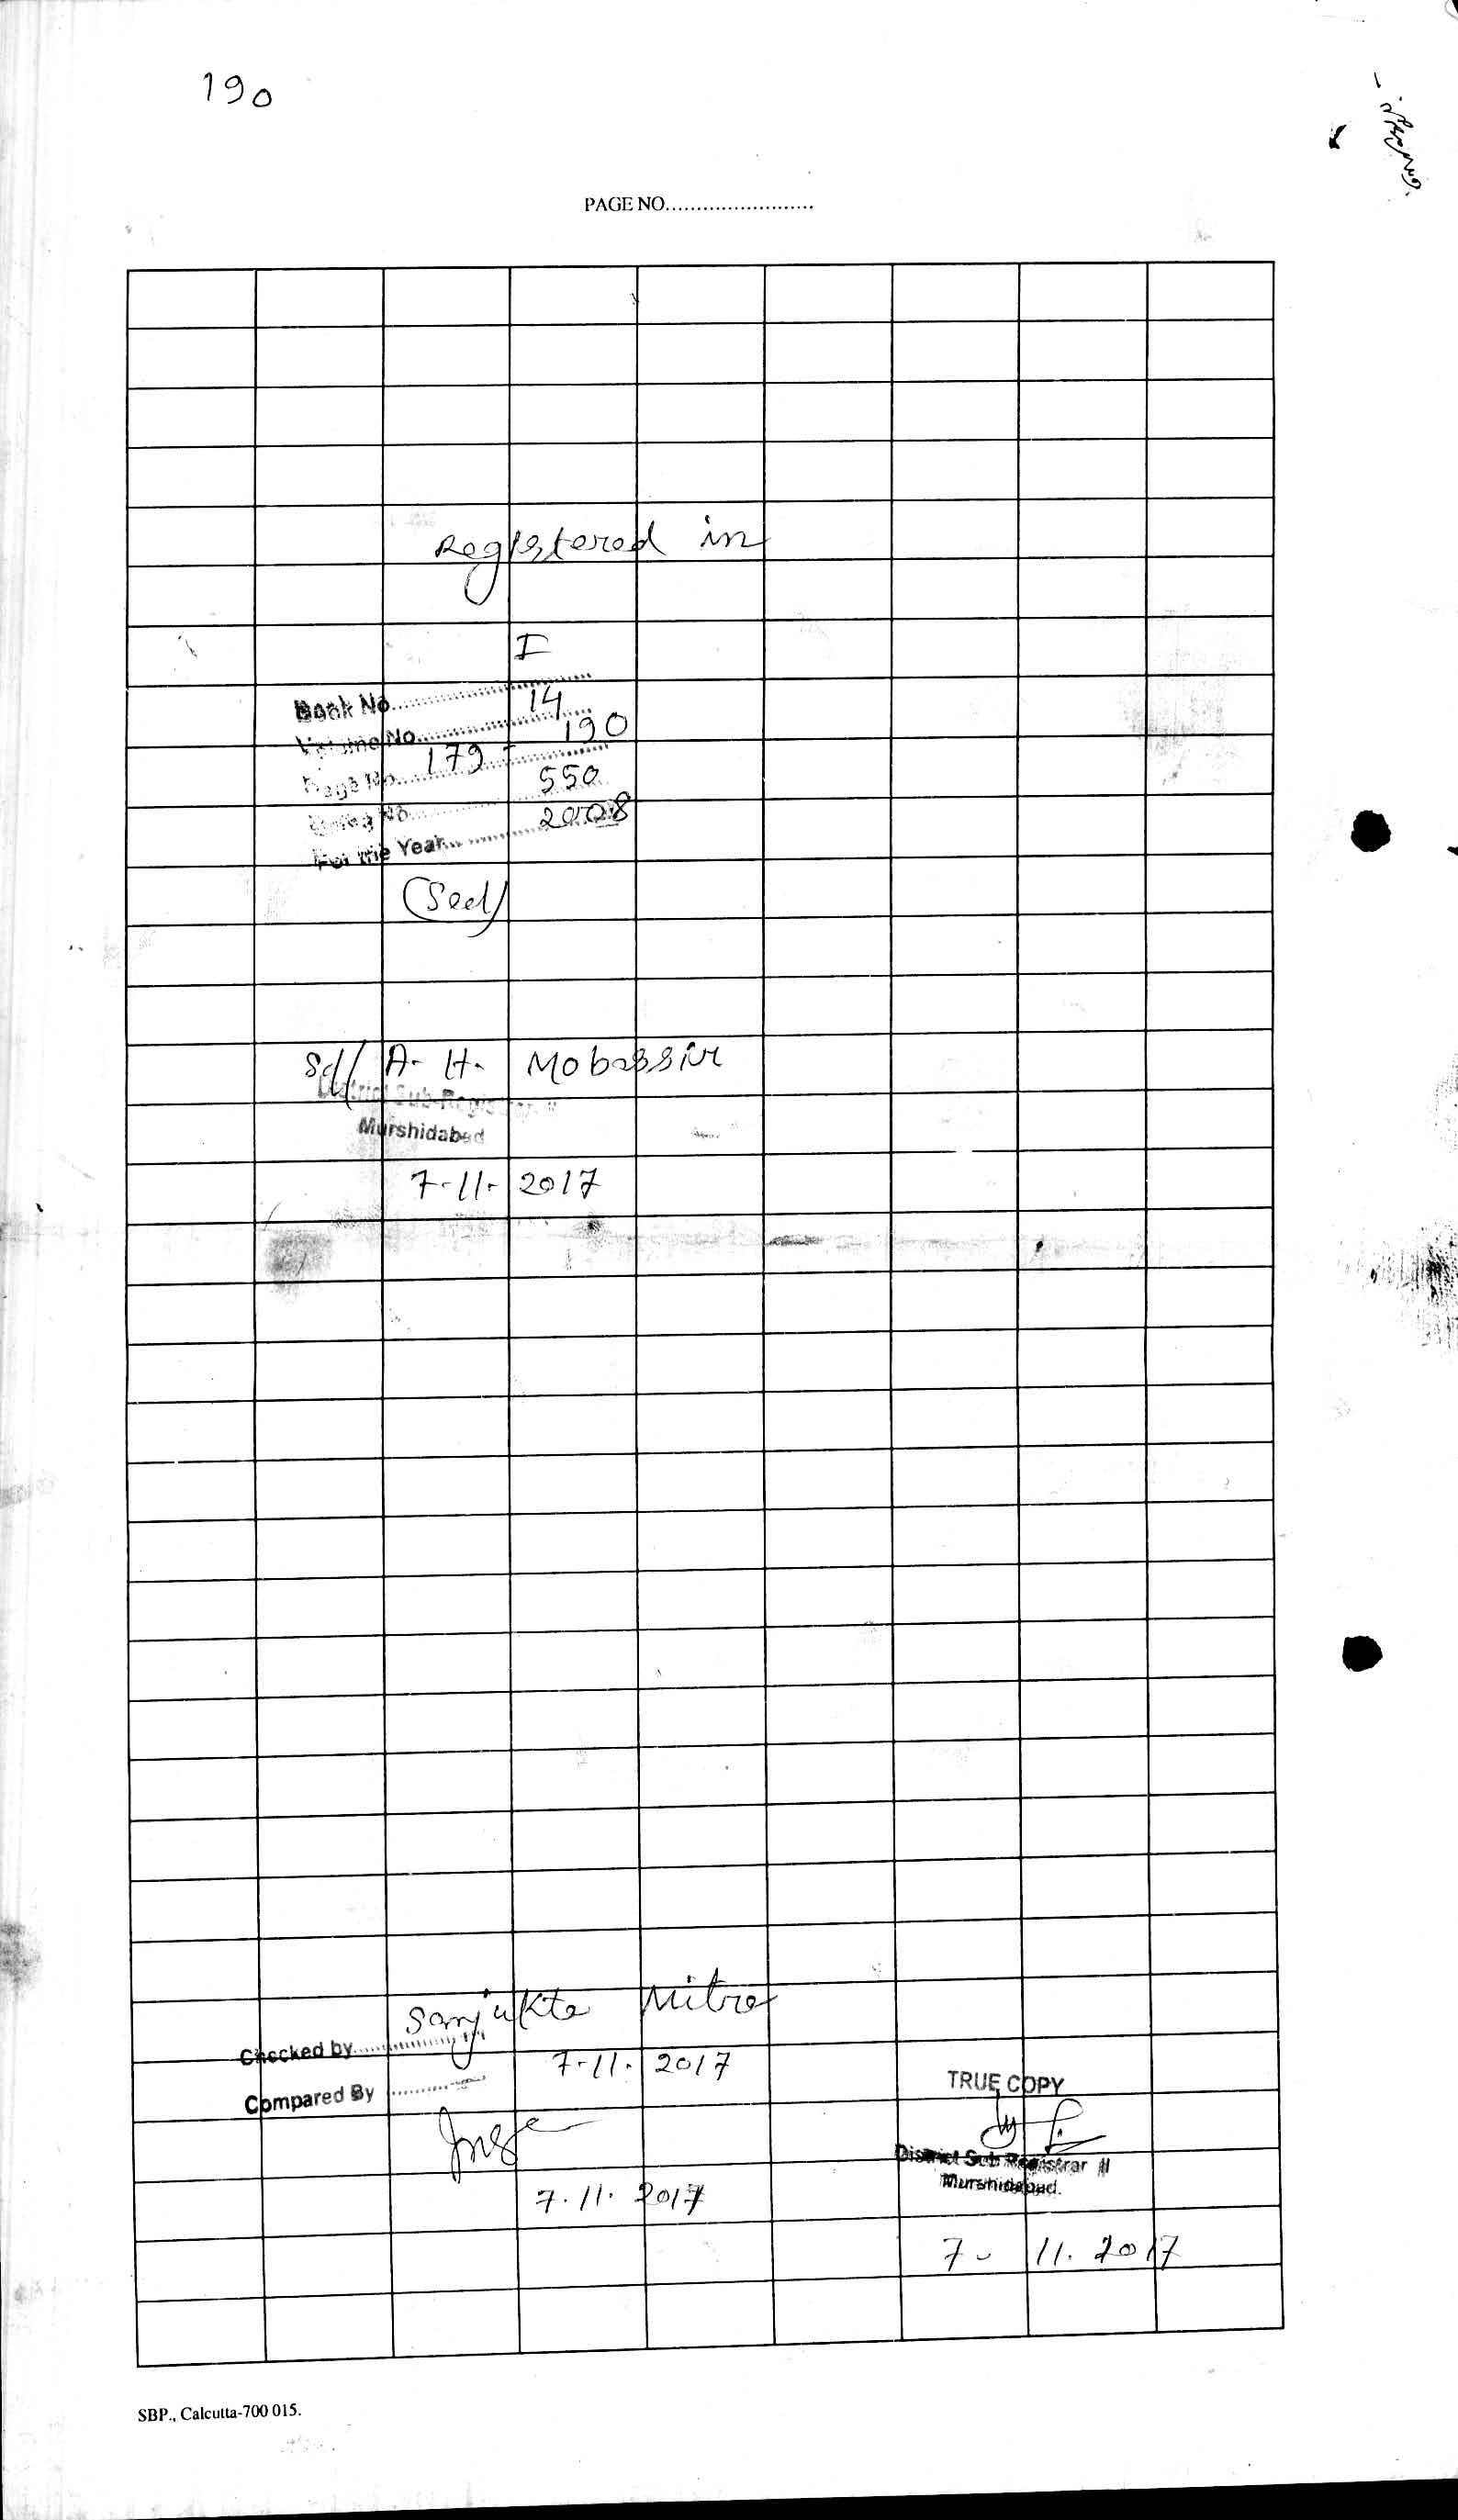 190
PAGE NO........................
Registered in
I
Book No. 14
Volume No. 190
Page No. 179 -
Being No. 550
For the Year 2008
(Seal)
Sd/ A. H. Mobassir
District Sub-Registrar
Murshidabad
7-11-2017
Sanjukta Mitra
Checked by
7-11-2017
Compared By
7.11.2017
TRUE COPY
District Sub Registrar II
Murshidabad.
7-11.2017
SBP., Calcutta-700 015.